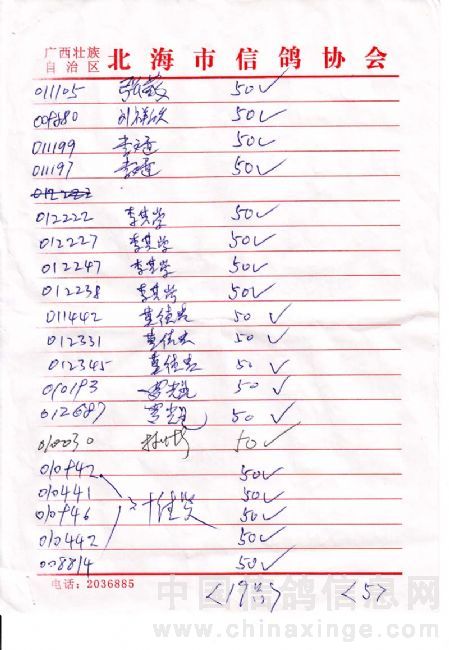 广西壮族自治区 北海市信鸽协会
011105 张敏 50✓
009280 刘祥欣 50✓
011199 李通 50✓
011197 李通 50✓
012222 李其学 50✓
012227 李其学 50✓
012247 李其学 50✓
012238 李其学 50✓
011442 50✓
012331 50✓
012345 50✓
010193 50✓
012687 50✓
010030 50✓
010942 50✓
010441 50✓
010946 50✓
010442 50✓
008814 50✓
电话:2036885
<19羽> <5>
中国信鸽信息网
www.chinaxinge.com